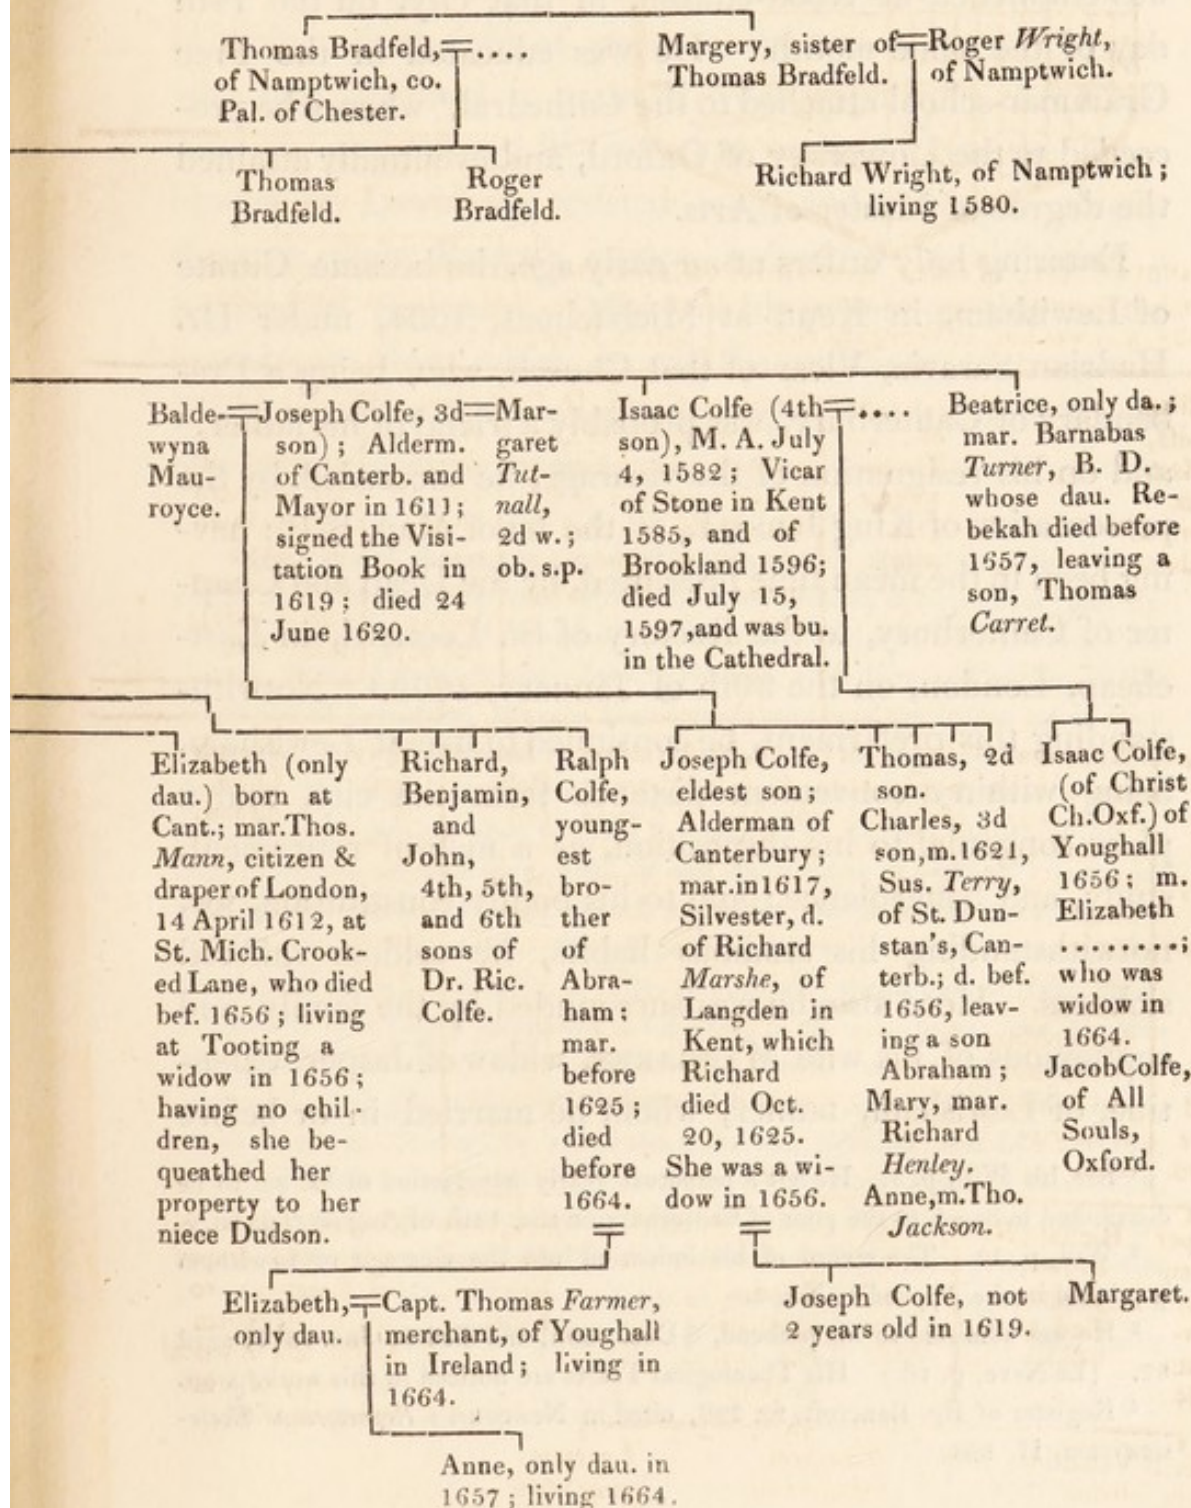 Thomas Bradfeld,=....
of Namptwich, co.
Pal. of Chester.
Margery, sister of=Roger Wright,
Thomas Bradfeld. of Namptwich.
Thomas
Bradfeld.
Roger
Bradfeld.
Richard Wright, of Namptwich;
living 1580.
Balde-
wyna
Mau-
royce.
=Joseph Colfe, 3d=
son); Alderm.
of Canterb. and
Mayor in 1611;
signed the Visi-
tation Book in
1619; died 24
June 1620.
Mar-
garet
Tut-
nall,
2d w.;
ob. s.p.
Isaac Colfe (4th=....
son), M. A. July
4, 1582; Vicar
of Stone in Kent
1585, and of
Brookland 1596;
died July 15,
1597,and was bu.
in the Cathedral.
Beatrice, only da.;
mar. Barnabas
Turner, B. D.
whose dau. Re-
bekah died before
1657, leaving a
son, Thomas
Carret.
Elizabeth (only
dau.) born at
Cant.; mar.Thos.
Mann, citizen &
draper of London,
14 April 1612, at
St. Mich. Crook-
ed Lane, who died
bef. 1656; living
at Tooting a
widow in 1656;
having no chil-
dren, she be-
queathed her
property to her
niece Dudson.
Richard,
Benjamin,
and
John,
4th, 5th,
and 6th
sons of
Dr. Ric.
Colfe.
Ralph
Colfe,
young-
est
bro-
ther
of
Abra-
ham:
mar.
before
1625;
died
before
1664.
Joseph Colfe,
eldest son;
Alderman of
Canterbury;
mar.in 1617,
Silvester, d.
of Richard
Marshe, of
Langden in
Kent, which
Richard
died Oct.
20, 1625.
She was a wi-
dow in 1656.
Thomas, 2d
son.
Charles, 3d
son,m.1621,
Sus. Terry,
of St. Dun-
stan's, Can-
terb.; d. bef.
1656, leav-
ing a son
Abraham;
Mary, mar.
Richard
Henley.
Anne,m.Tho.
Jackson.
Isaac Colfe,
(of Christ
Ch.Oxf.) of
Youghall
1656; m.
Elizabeth
........;
who was
widow in
1664.
Jacob Colfe,
of All
Souls,
Oxford.
Elizabeth,=Capt. Thomas Farmer,
only dau. merchant, of Youghall
in Ireland; living in
1664.
Joseph Colfe, not
2 years old in 1619.
Margaret.
Anne, only dau. in
1657; living 1664.